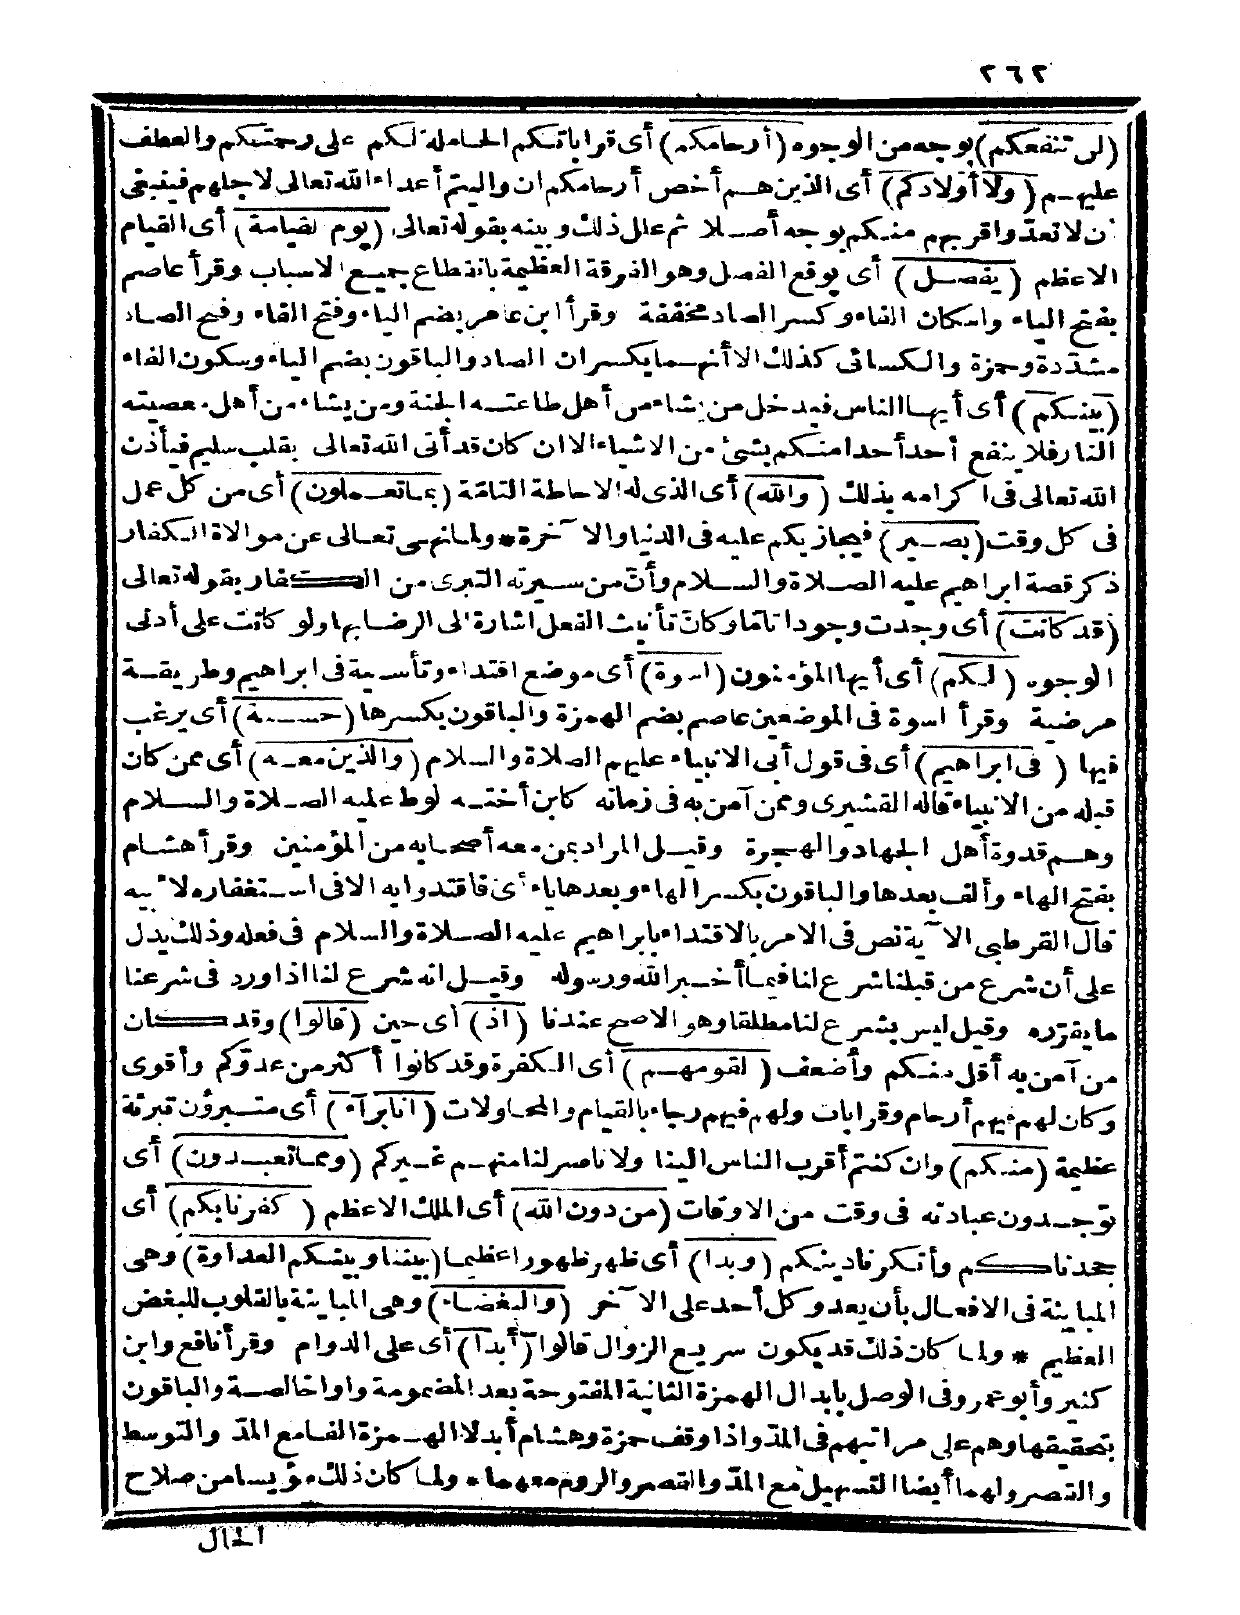 ٢٦٢
(لن تنفعكم) بوجه من الوجوه (أرحامكم) أى قراباتكم الحاملة لكم على رحمتكم والعطف
عليهم (ولا أولادكم) أى الذين هم أخص أرحامكم ان واليتم أعداء الله تعالى لاجلهم فينبغى
أن لا تعدوا قربهم منكم بوجه أصلا ثم علل ذلك وبينه بقوله تعالى (يوم القيامة) أى القيام
الاعظم (يفصل) أى يوقع الفصل وهو الفرقة العظيمة بانقطاع جميع الاسباب وقرأ عاصم
بفتح الياء واسكان الفاء وكسر الصاد مخففة وقرأ ابن عامر بضم الياء وفتح الفاء وفتح الصاد
مشددة وحمزة والكسائى كذلك الا أنهما يكسران الصاد والباقون بضم الياء وسكون الفاء
(بينكم) أى أيها الناس فيدخل من يشاء من أهل طاعته الجنة ومن يشاء من أهل معصيته
النار فلا ينفع أحد أحدا منكم بشئ من الاشياء الا ان كان قد أتى الله تعالى بقلب سليم فيأذن
الله تعالى فى اكرامه بذلك (والله) أى الذى له الاحاطة التامّة (بما تعملون) أى من كل عمل
فى كل وقت (بصير) فيجازيكم عليه فى الدنيا والآخرة * ولما نهى تعالى عن موالاة الكفار
ذكر قصة ابراهيم عليه الصلاة والسلام وأنّ من سيرته التبرى من الكفار بقوله تعالى
(قد كانت) أى وجدت وجودا تامّا وكان تأنيث الفعل اشارة الى الرضا بها ولو كانت على أدنى
الوجوه (لكم) أى أيها المؤمنون (اسوة) أى موضع اقتداء وتأسية فى ابراهيم وطريقة
مرضية وقرأ اسوة فى الموضعين عاصم بضم الهمزة والباقون بكسرها (حسنة) أى يرغب
فيها (فى ابراهيم) أى فى قول أبى الانبياء عليهم الصلاة والسلام (والذين معه) أى ممن كان
قبله من الانبياء قاله القشيرى وممن آمن به فى زمانه كابن أخته لوط عليه الصلاة والسلام
وهم قدوة أهل الجهاد والهجرة وقيل المراد بمن معه أصحابه من المؤمنين وقرأ هشام
بفتح الهاء وألف بعدها والباقون بكسر الهاء وبعدها ياء أى فاقتدوا به الا فى استغفاره لابيه
قال القرطبى الآية نص فى الامر بالاقتداء بابراهيم عليه الصلاة والسلام فى فعله وذلك يدل
على أن شرع من قبلنا شرع لنا فيما أخبر الله ورسوله وقيل انه شرع لنا اذا ورد فى شرعنا
ما يقرّره وقيل ليس بشرع لنا مطلقا وهو الاصح عندنا (اذ) أى حين (قالوا) وقد كان
من آمن به أقل منكم وأضعف (لقومهم) أى الكفرة وقد كانوا أكثر من عدوّكم وأقوى
وكان لهم فيهم أرحام وقرابات ولهم فيهم رجاء بالقيام والمحاولات (انا برآء) أى متبرؤن تبرئة
عظيمة (منكم) وان كنتم أقرب الناس الينا ولا ناصر لنا منهم غيركم (ومما تعبدون) أى
توجدون عبادته فى وقت من الاوقات (من دون الله) أى الملك الاعظم (كفرنا بكم) أى
جحدناكم وأنكرنا دينكم (وبدا) أى ظهر ظهورا عظيما (بيننا وبينكم العداوة) وهى
المباينة فى الافعال بأن يعدو كل أحد على الآخر (والبغضاء) وهى المباينة بالقلوب للبغض
العظيم * ولما كان ذلك قد يكون سريع الزوال قالوا (أبدا) أى على الدوام وقرأ نافع وابن
كثير وأبو عمرو فى الوصل بابدال الهمزة الثانية المفتوحة بعد المضمومة واوا خالصة والباقون
بتحقيقها وهم على مراتبهم فى المدّ واذا وقف حمزة وهشام أبدلا الهمزة ألفا مع المدّ والتوسط
والقصر ولهما أيضا التسهيل مع المدّ والقصر والروم معهما * ولما كان ذلك مؤيسا من صلاح
الحال